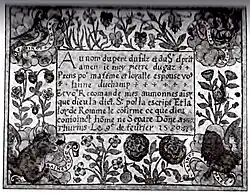 Au nom du pere du filz et du St esprit
amen ie moy pierre du gaz
Prens po' ma feme et loyalle espouse vo'
fanne duchamp
Et vo' Recomande mes aumonnes ainsy
que dieu la dict St pol la escript Et la
loy de Romme le cofirme ce que dieu
conioinct home ne Separe Donc a
le 9e de febvrier 1589